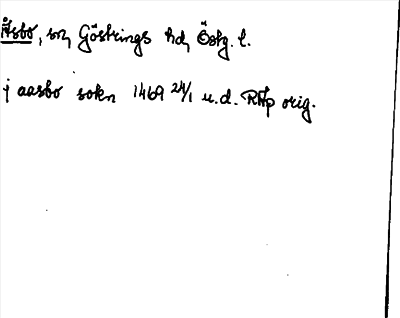 Åsbo, sn, Göstrings hd, Östg. l.
j aasbo sokn 1469 24/1 u.d. RAp orig.